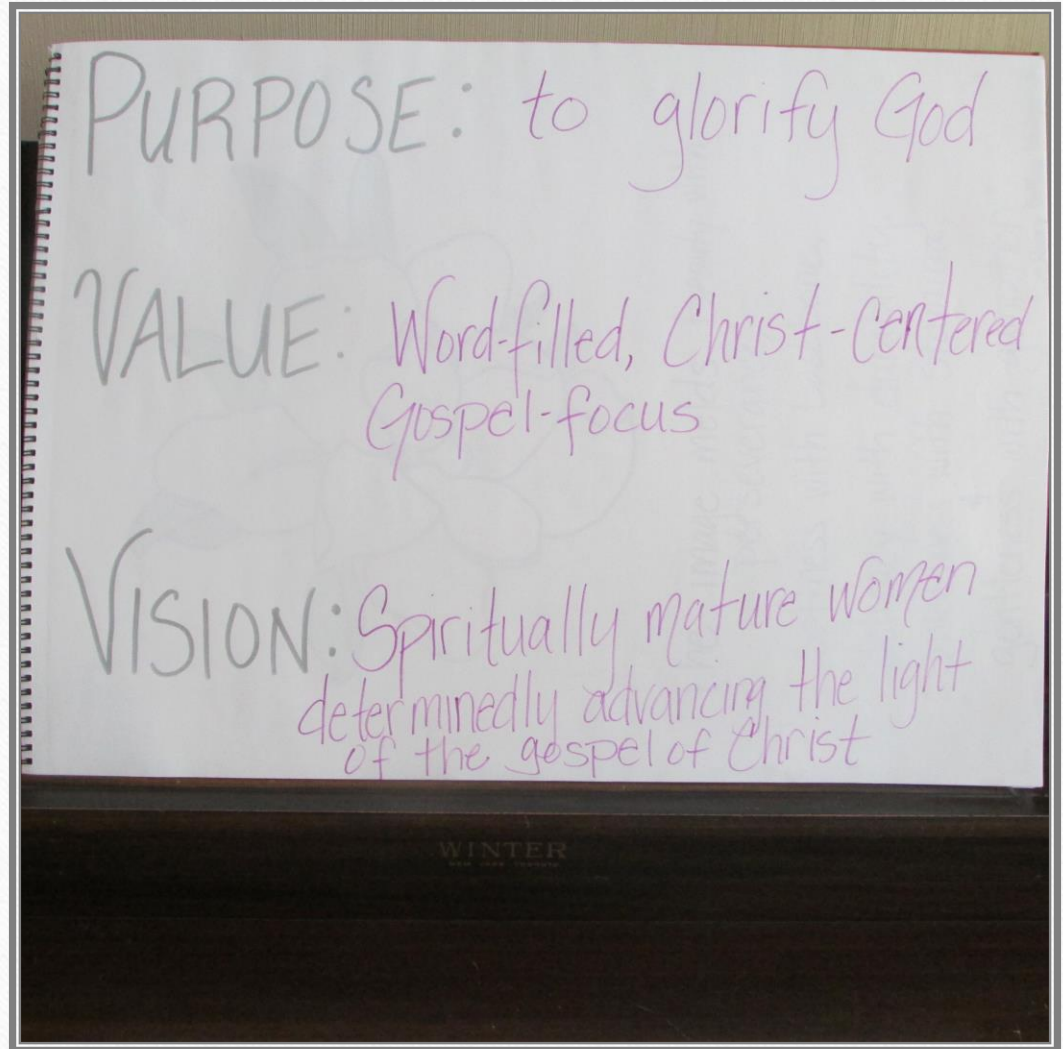 PURPOSE: to glorify God
VALUE: Word-filled, Christ-centered
Gospel-focus
VISION: Spiritually mature women
determinedly advancing the light
of the gospel of Christ
WINTER